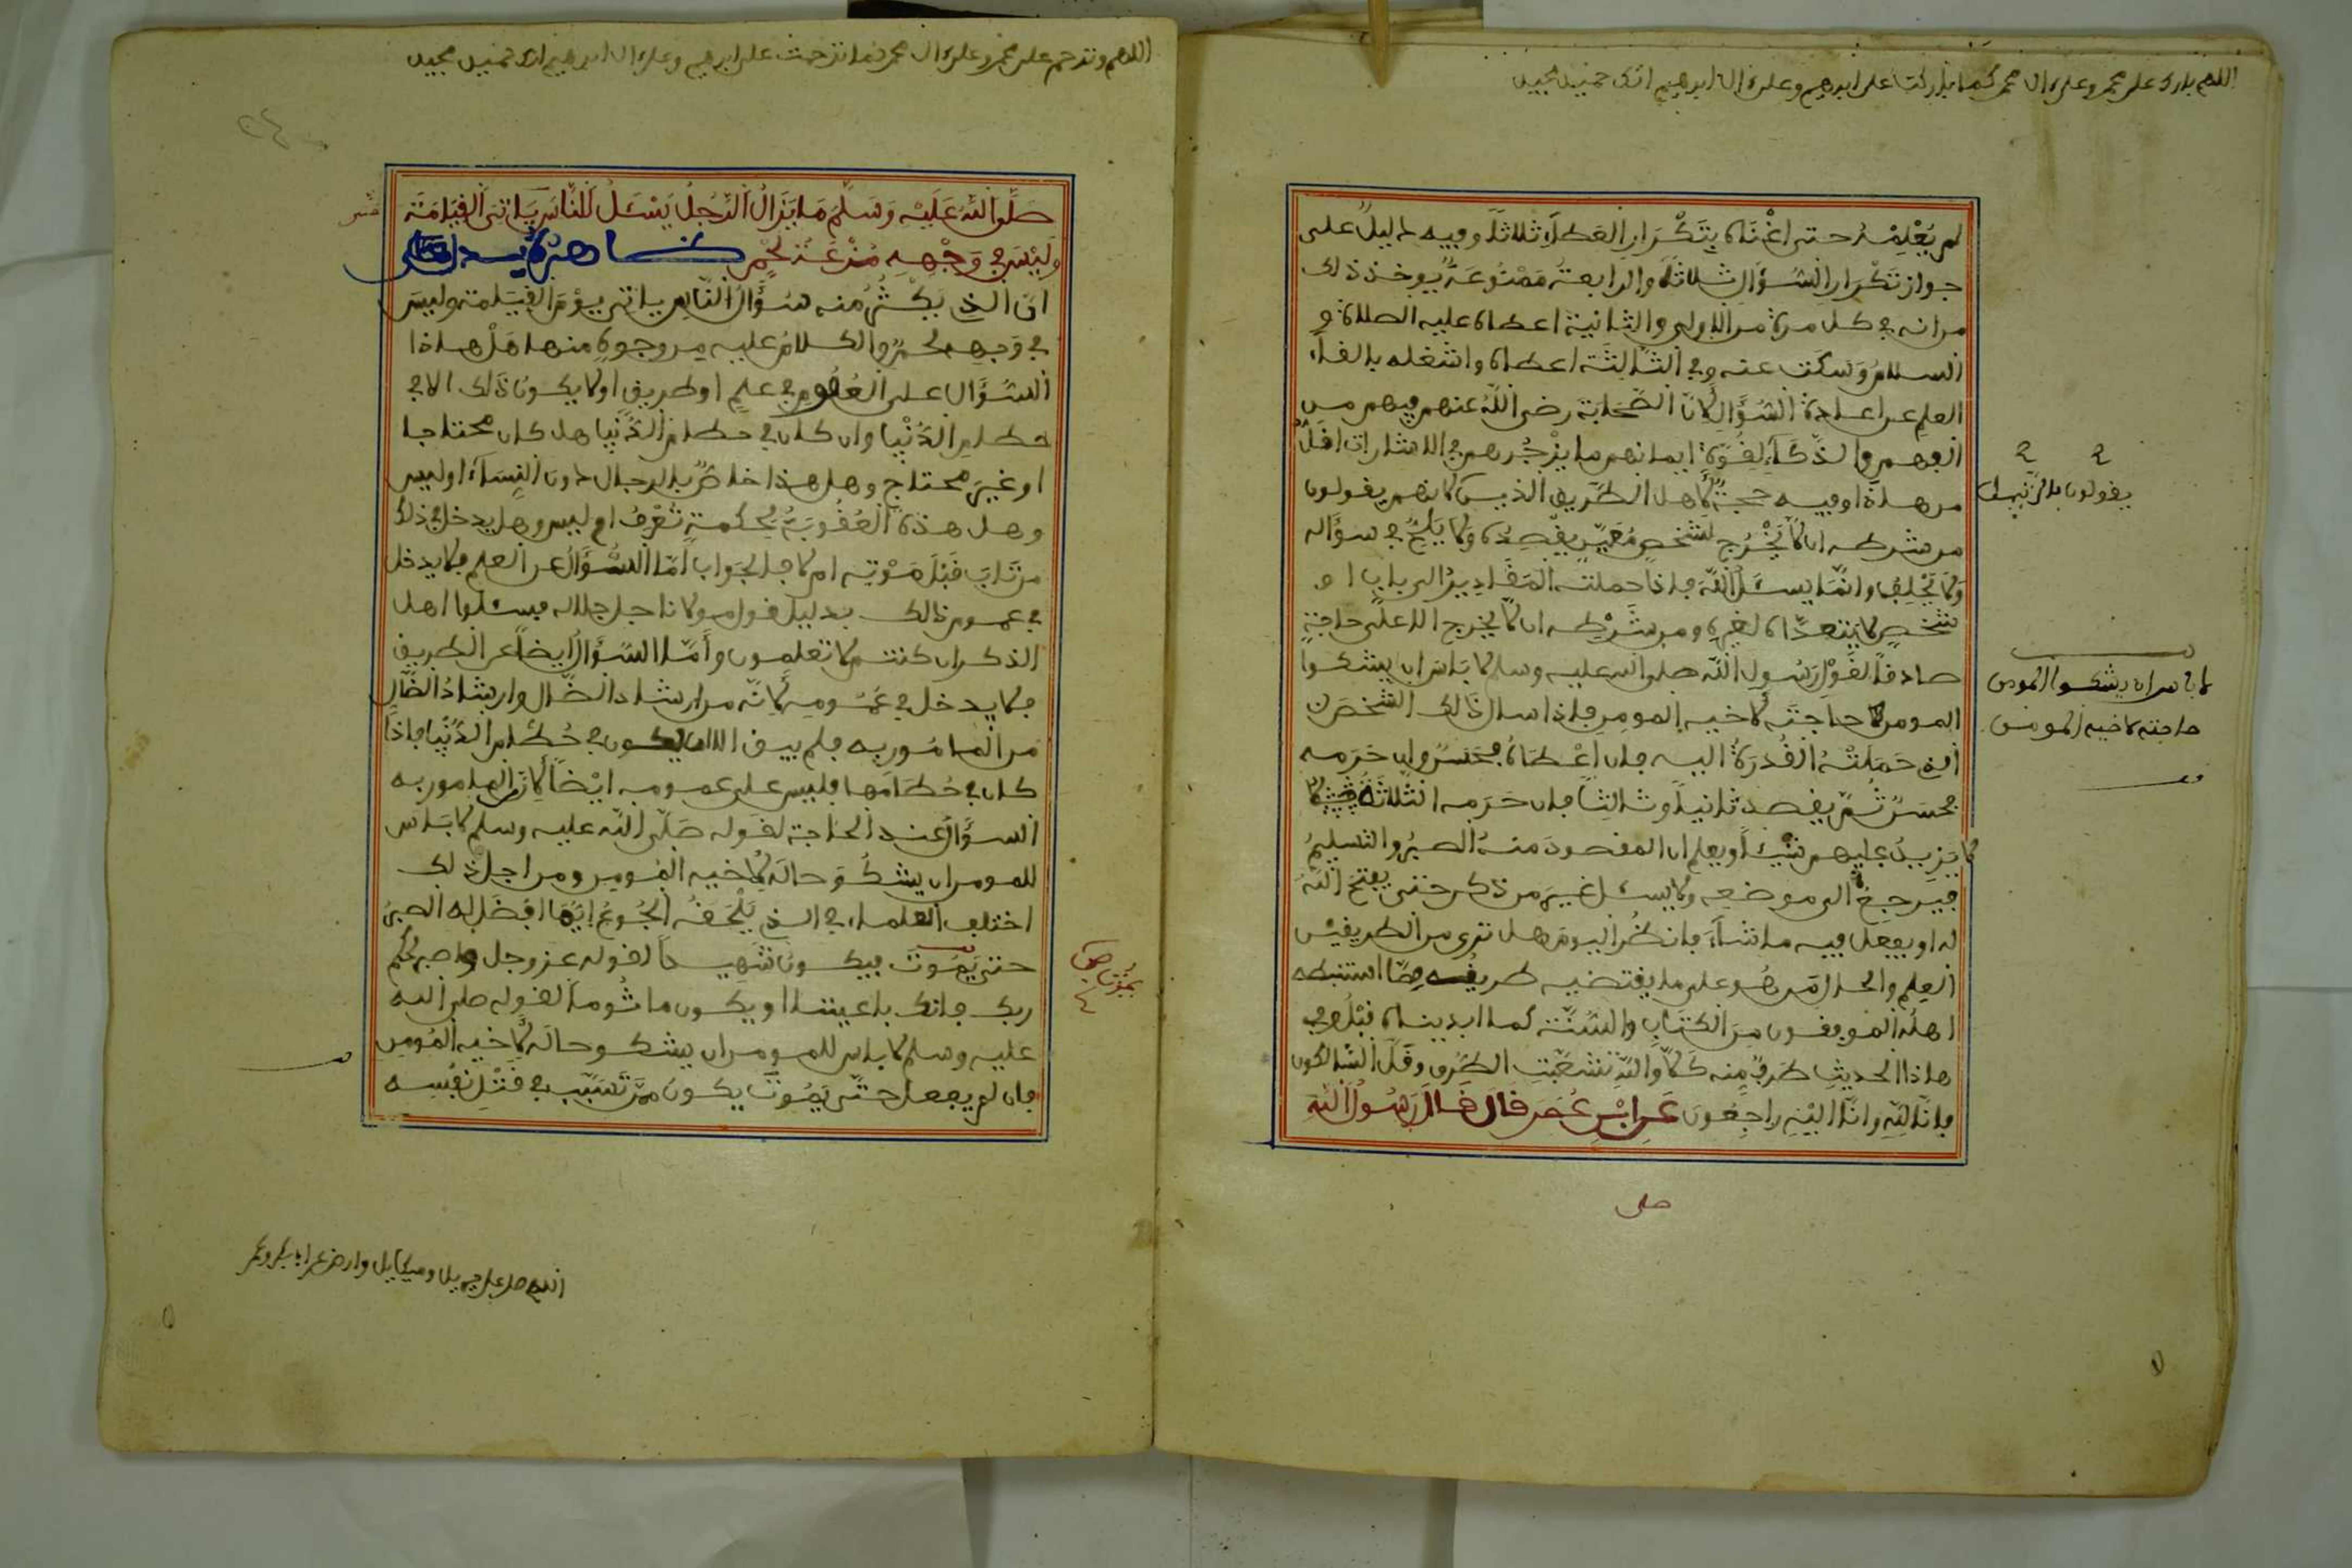 اللهم بارك على محمد وعلى ءال محمد كما باركت على ابرهيم وعلى ءال ابرهيم انك حميد مجيد
لم يُعْلِمْهُ حتى اغْناه بتَكْرارِ العطاءِ ثلاثًا وفيه دليلٌ على
جواز تكْرارِ السُّؤالِ ثلاثةً والرابعةُ مَمْنُوعَةٌ يوخذ ذلك
من انه في كل مرة من الاولى والثانية اعطاه عليه الصلاة و
السلامُ وَسكت عنه وفي الثالثَة اعطاه واشغله بالقاءِ
العلم عن اعادة السُّؤَالِ لأنّ الصَّحابَة رضى اللّه عنهم فيهم من
الفهم والذَّكَاءِ لقُوّة ايمانهم ما يزْجُرهم في الاشارات اقلُّ
من هاذا وفيه حجة لأهل الطَّريق الذين لانهم يقولون
من شرطه ان لا يَخْرُج لشخصٍ مُعَيَّنٍ يقْصِدُه ولا يَلِحُّ في سؤاله
ولا يَحْلِف وانَّما يسـَٔلُ اللّهَ فاذا حملته المَقَادِيرُ الى باب او
شخصٍ لا يتعدّاه لغيره ومن شَرْطِه ان لّا يخرج الا على حاجةٍ
صادقًا لقَوْلِ رَسُولِ اللّه صلى الله عليه وسلم لا بَاس ان يشكوا
المومن حاجتَه لأخيه المومن فاذا سال ذالك الشخصَ
الذي حَمَلَتْهُ القُدرَةُ اليه فان اعْطَاهُ فحَسَنٌ وان حَرَمه
فحسَنٌ ثُمّ يقصد ثانيًا وثالثًا فان حَرَمه الثلاثَةُ
لا يزِيدُ عليهم شيْئًا ويعلم ان المقصودَ منه الصبْرُ والتسليمُ
فيرجعُ الى موضعِه ولا يسئل غيرَ من ذكر حتى يفتحَ اللّهُ
له او يفعل فيه ما شاءَ فانظُر اليومَ هل ترى من الطريقَيْن
العِلمِ والحال مَن هُو على ما يقتضيه طريقُه ممّا استنبطه
اهلُه الموفقون مِنَ الكتَابِ والسُّنَّة كما ابديناه قبْلُ وفي
هاذا الحديثِ طَرَفٌ منه كَلَّا واللّهِ تشعَّبَتِ الطُّرق وقَلَّ السّالكون
فانّا لِلّهِ وانّا اليْهِ راجِعُونَ عَنِ ابْنِ عُمَرَ قَالَ قَالَ رَسُولُ اللّهِ
صلى
يقولون بالزنبيل
لا باس ان يشكوا المومن
حاجته لاخيه المومن
اللهم وترحم على محمد وعلى ءال محمد كما ترحمت على ابرهيم وعلى ءال ابرهيم انك حميد مجيد
صَلَّى اللّهُ عَلَيْهِ وَسَلَّمَ مَا يَزَالُ الرَّجُلُ يَسْـَٔلُ النَّاسَ يَاتِىَ القِيَامَة
وَلَيْسَ فِي وَجْهِهِ مُزْعَةُ لَحْمٍ
انّ الذي يَكْثُرُ منه سُؤَالُ النّاسِ ياتى يوْمَ القِيَامة وليسَ
في وَجهِه لحْمٌ والكلامُ عليه من وجوهٍ منها هَلْ هاذا
السُّؤَال على العُمُومِ في علمٍ او طريقٍ او لا يكونُ ذَلك الا في
حطامِ الدُّنْيا وان كان في حطام الدُّنْيا هل كان محتاجا
او غيرَ محتاجٍ وهل هذا خاصٌّ بالرجال دون النِّسَاءِ او ليس
وهل هذه العُقُوبَةُ لِحكمةٍ تُعْرَفُ او ليس وهل يدخل في ذلك
من تَابَ قَبْلَ مَوْتِه ام لا فالجَواب امّا السُّؤَالُ عن العلم فلا يدخل
في عموم ذالك بدليل قول مولانا جل جلاله فسـَٔلوا اهل
الذكر ان كنتم لا تعلمون وأَمّا السُّؤَالُ ايضًا عن الطريق
فلا يدخل في عُمُومِه لأنّه من ارشاد الضّال وارشادُ الضَّالِ
من المامُور به فلم يبق الا ان يكون في حُطَامِ الدُّنْيا فاذا
كان في حُطَامها فليس على عمومه ايْضًا لأنّ المامور به
السؤَال عند الحاجة لقوله صَلّى اللّه عليه وسلم لا بَاس
للمومن ان يشكُوَ حالَه لأخيه المُومِن ومن اجل ذلك
اختلف العلماء في الذي يَلْحَقُه الجُوعُ ايّهُمَا افضَل له الصبْرُ
حتى يَمُوتَ فيكونَ شَهِيدًا لقوله عز وجل واصبر لحُكْمِ
ربك فانك باعيننا او يكون ماثُومًا لقوله صلى الله
عليه وسلم لا باس للمومن ان يشكو حالَه لأَخيه المُومِن
فان لم يفعل حتّى يَمُوت يكونُ مِمَّن تَسَبَّب في قتْلِ نفْسِه
اللهم صل على جبريل وميكايل وارض عن ابا بكر وعمر